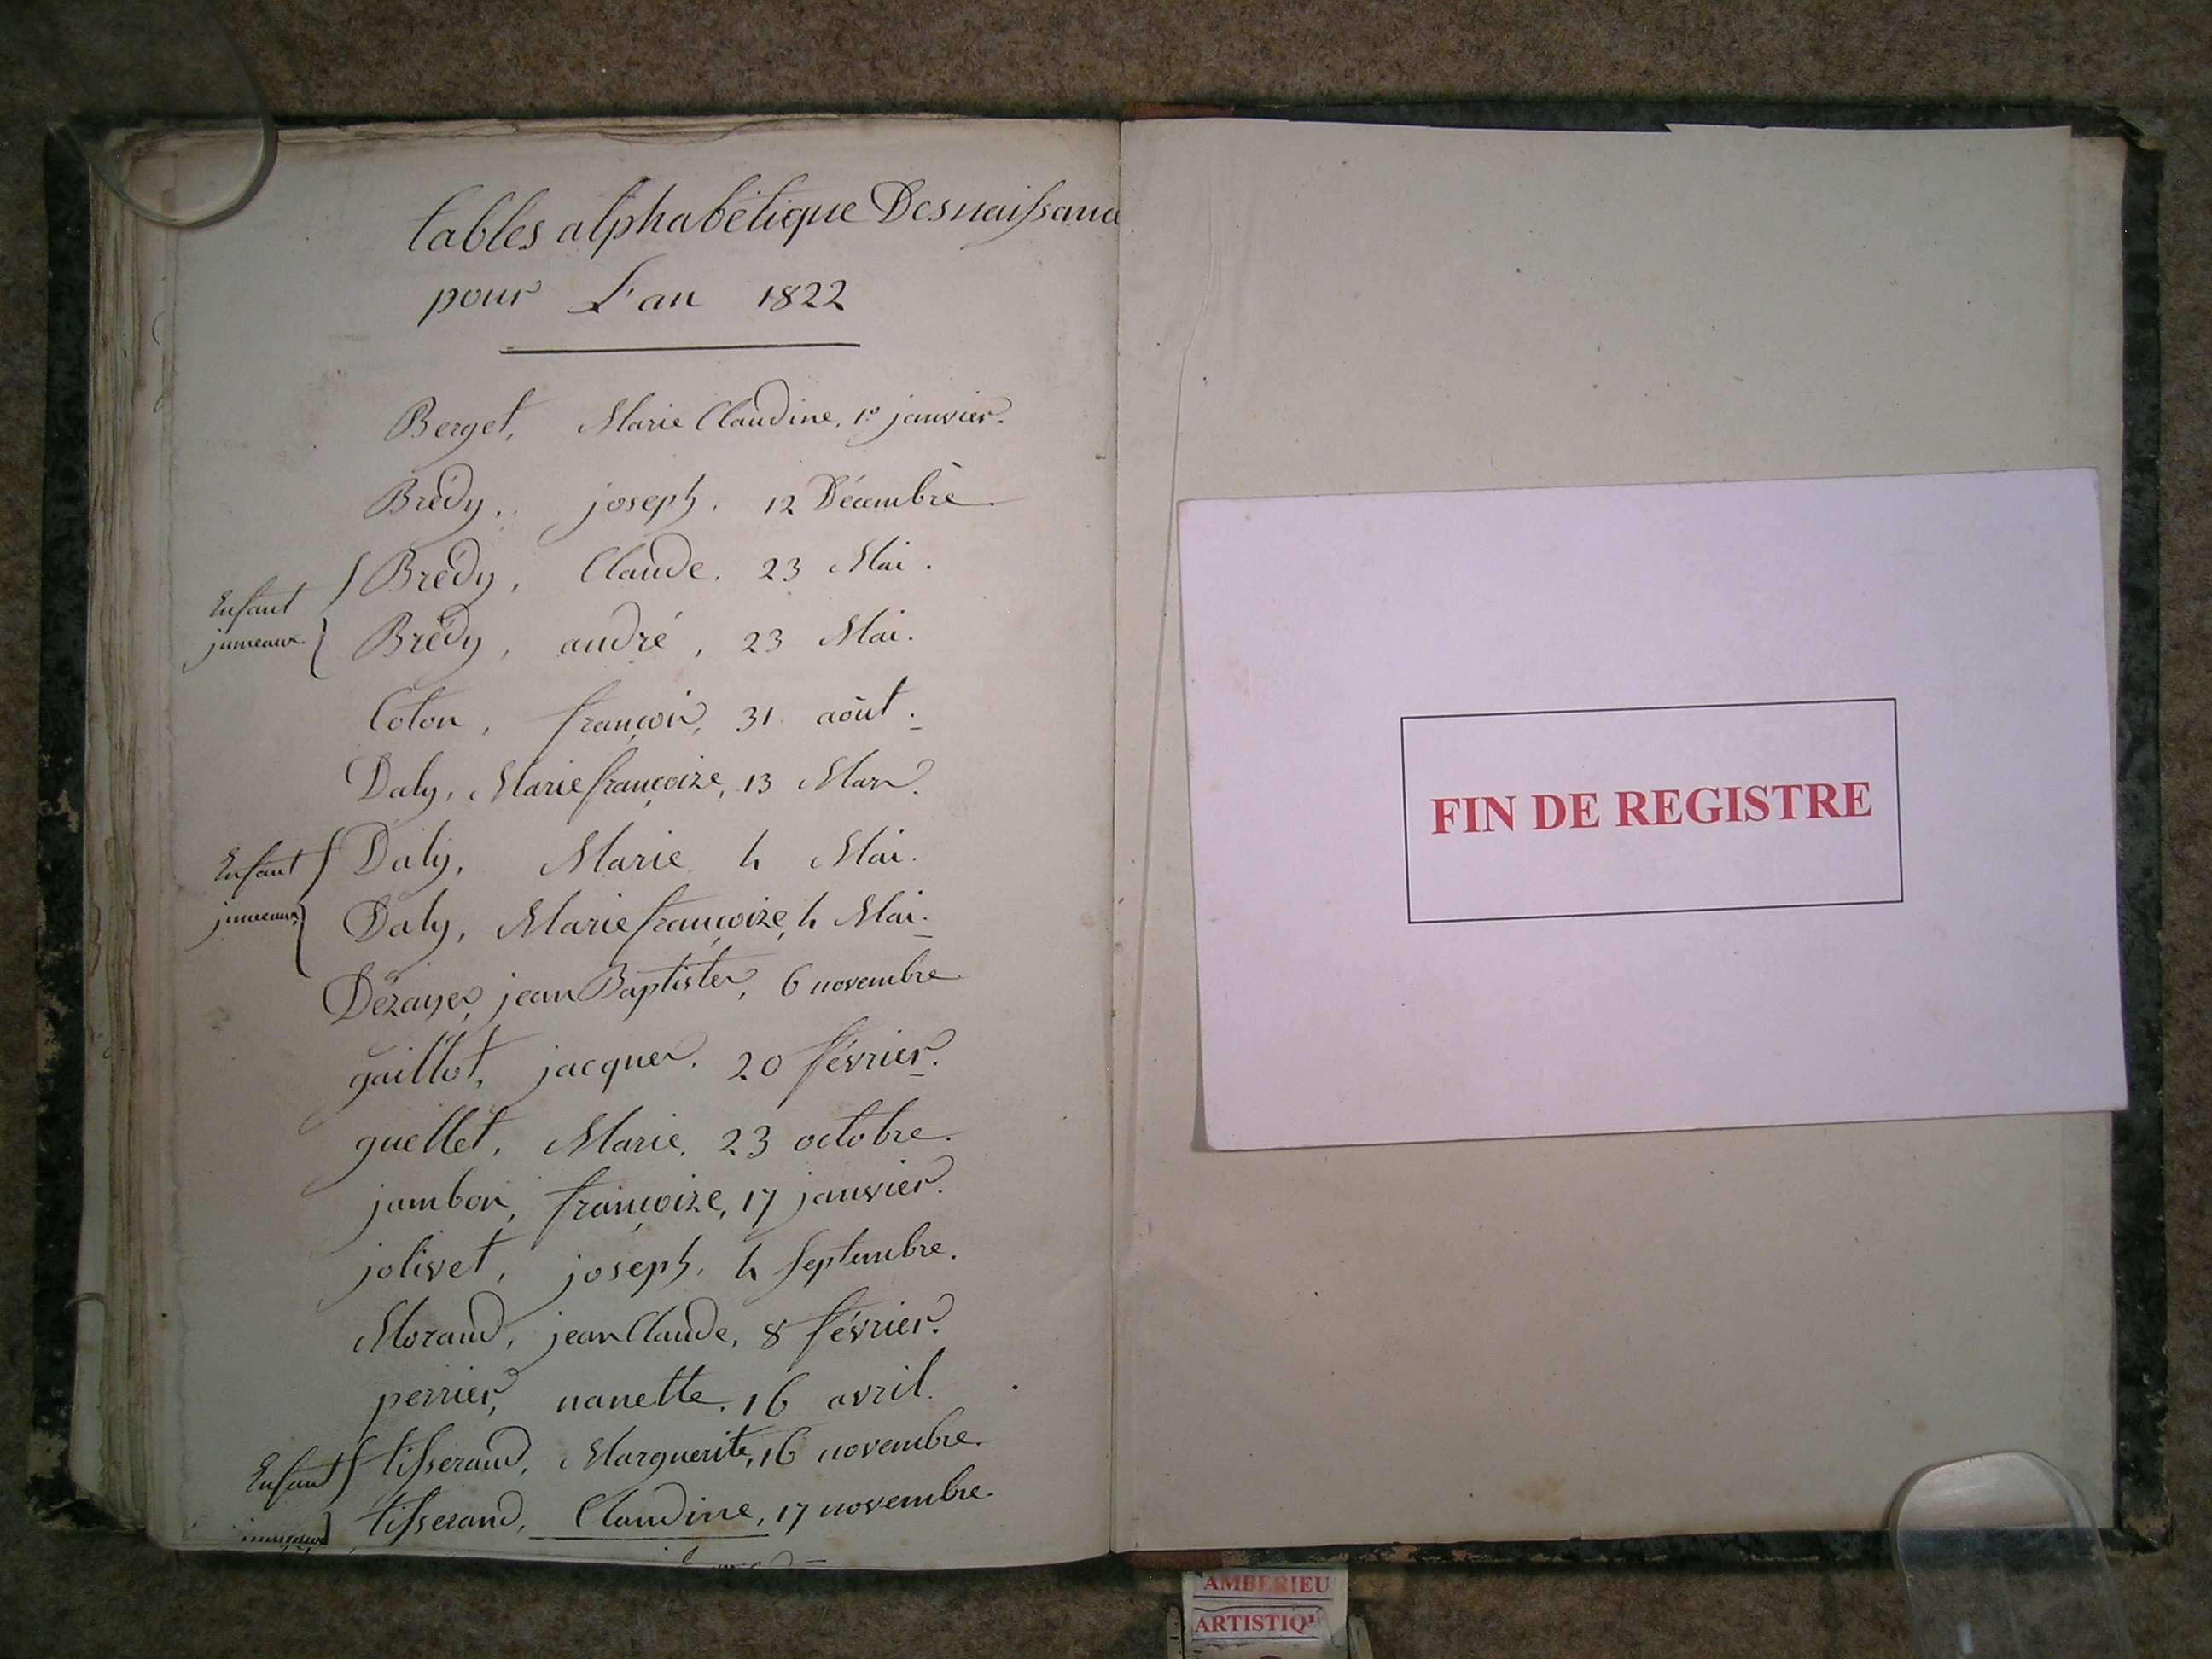 tables alphabétique Des naissanc
pour L'an 1822
Berget, Marie Claudine, 1º janvier.
Brédy, joseph, 12 Décembre
Brédy, Claude, 23 Mai.
Enfant
jumeaux
Brédy, andré, 23 Mai.
Coton, françois, 31 août.
Daly, Marie françoize, 13 Mars.
Enfant
Daly, Marie 4 Mai.
jumeaux
Daly, Marie françoize, 4 Mai.
Dézayes, jean Baptiste, 6 novembre
gaillot, jacques, 20 février.
guellet, Marie, 23 octobre.
jambon, françoize, 17 janvier.
jolivet, joseph, 4 Septembre.
Morand, jean Claude, 8 février.
perrier, nanette, 16 avril.
Enfant
tisserand, Marguerite, 16 novembre.
jumeaux
tisserand, Claudine, 17 novembre.
FIN DE REGISTRE
AMBERIEU
ARTISTIQ